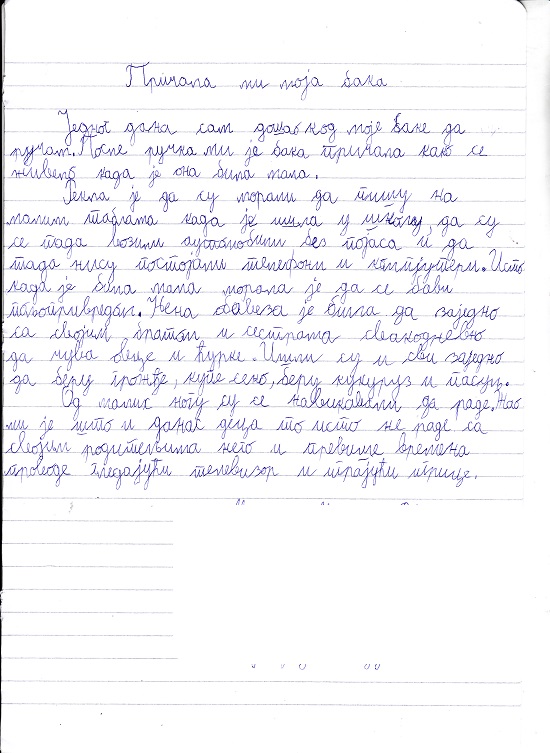 Причала ми моја бака
Једног дана сам дошао код моје баке да
ручам. После ручка ми је бака причала како се
живело када је она била мала.
Рекла је да су морали да пишу на
малим таблама када је ишла у школу, да су
се тада возили аутомобили без појаса и да
тада нису постојали телефони и компјутери. Исто
када је била мала морала је да се бави
пољопривредом. Њена обавеза је била да заједно
са својим братом и сестрама свакодневно
да чува овце и ћурке. Ишли су и сви заједно
да беру грожђе, купе сено, беру кукуруз и пасуљ.
Од малих ногу су се навикавали да раде. Жао
ми је што и данас деца то исто не раде са
својим родитељима него и превише времена
проводе гледајући телевизор и играјући игрице.